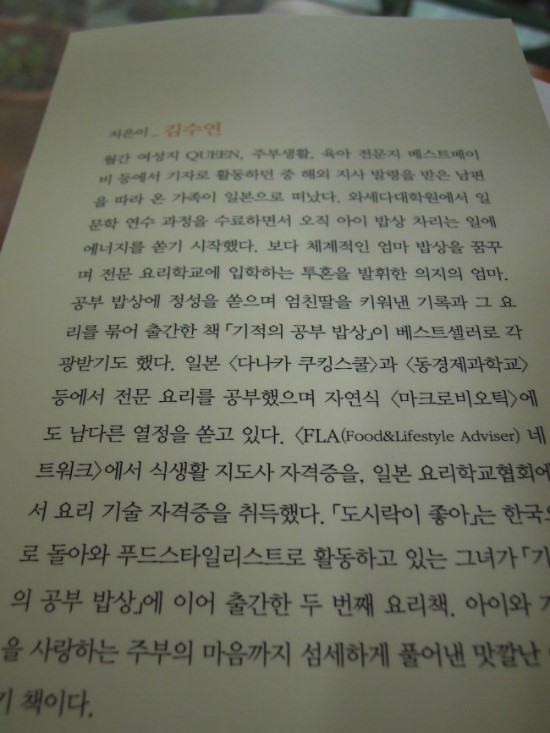 지은이 _ 김수연
월간 여성지 QUEEN, 주부생활, 육아 전문지 베스트베이
비 등에서 기자로 활동하던 중 해외 지사 발령을 받은 남편
을 따라 온 가족이 일본으로 떠났다. 와세다대학원에서 일
문학 연수 과정을 수료하면서 오직 아이 밥상 차리는 일에
에너지를 쏟기 시작했다. 보다 체계적인 엄마 밥상을 꿈꾸
며 전문 요리학교에 입학하는 투혼을 발휘한 의지의 엄마.
공부 밥상에 정성을 쏟으며 엄친딸을 키워낸 기록과 그 요
리를 묶어 출간한 책 「기적의 공부 밥상」이 베스트셀러로 각
광받기도 했다. 일본 〈다나카 쿠킹스쿨〉과 〈동경제과학교〉
등에서 전문 요리를 공부했으며 자연식 〈마크로비오틱〉에
도 남다른 열정을 쏟고 있다. 〈FLA(Food&Lifestyle Adviser) 네
트워크〉에서 식생활 지도사 자격증을, 일본 요리학교협회에
서 요리 기술 자격증을 취득했다. 「도시락이 좋아」는 한국으
로 돌아와 푸드스타일리스트로 활동하고 있는 그녀가 「기
의 공부 밥상」에 이어 출간한 두 번째 요리책. 아이와
을 사랑하는 주부의 마음까지 섬세하게 풀어낸 맛깔난
기 책이다.